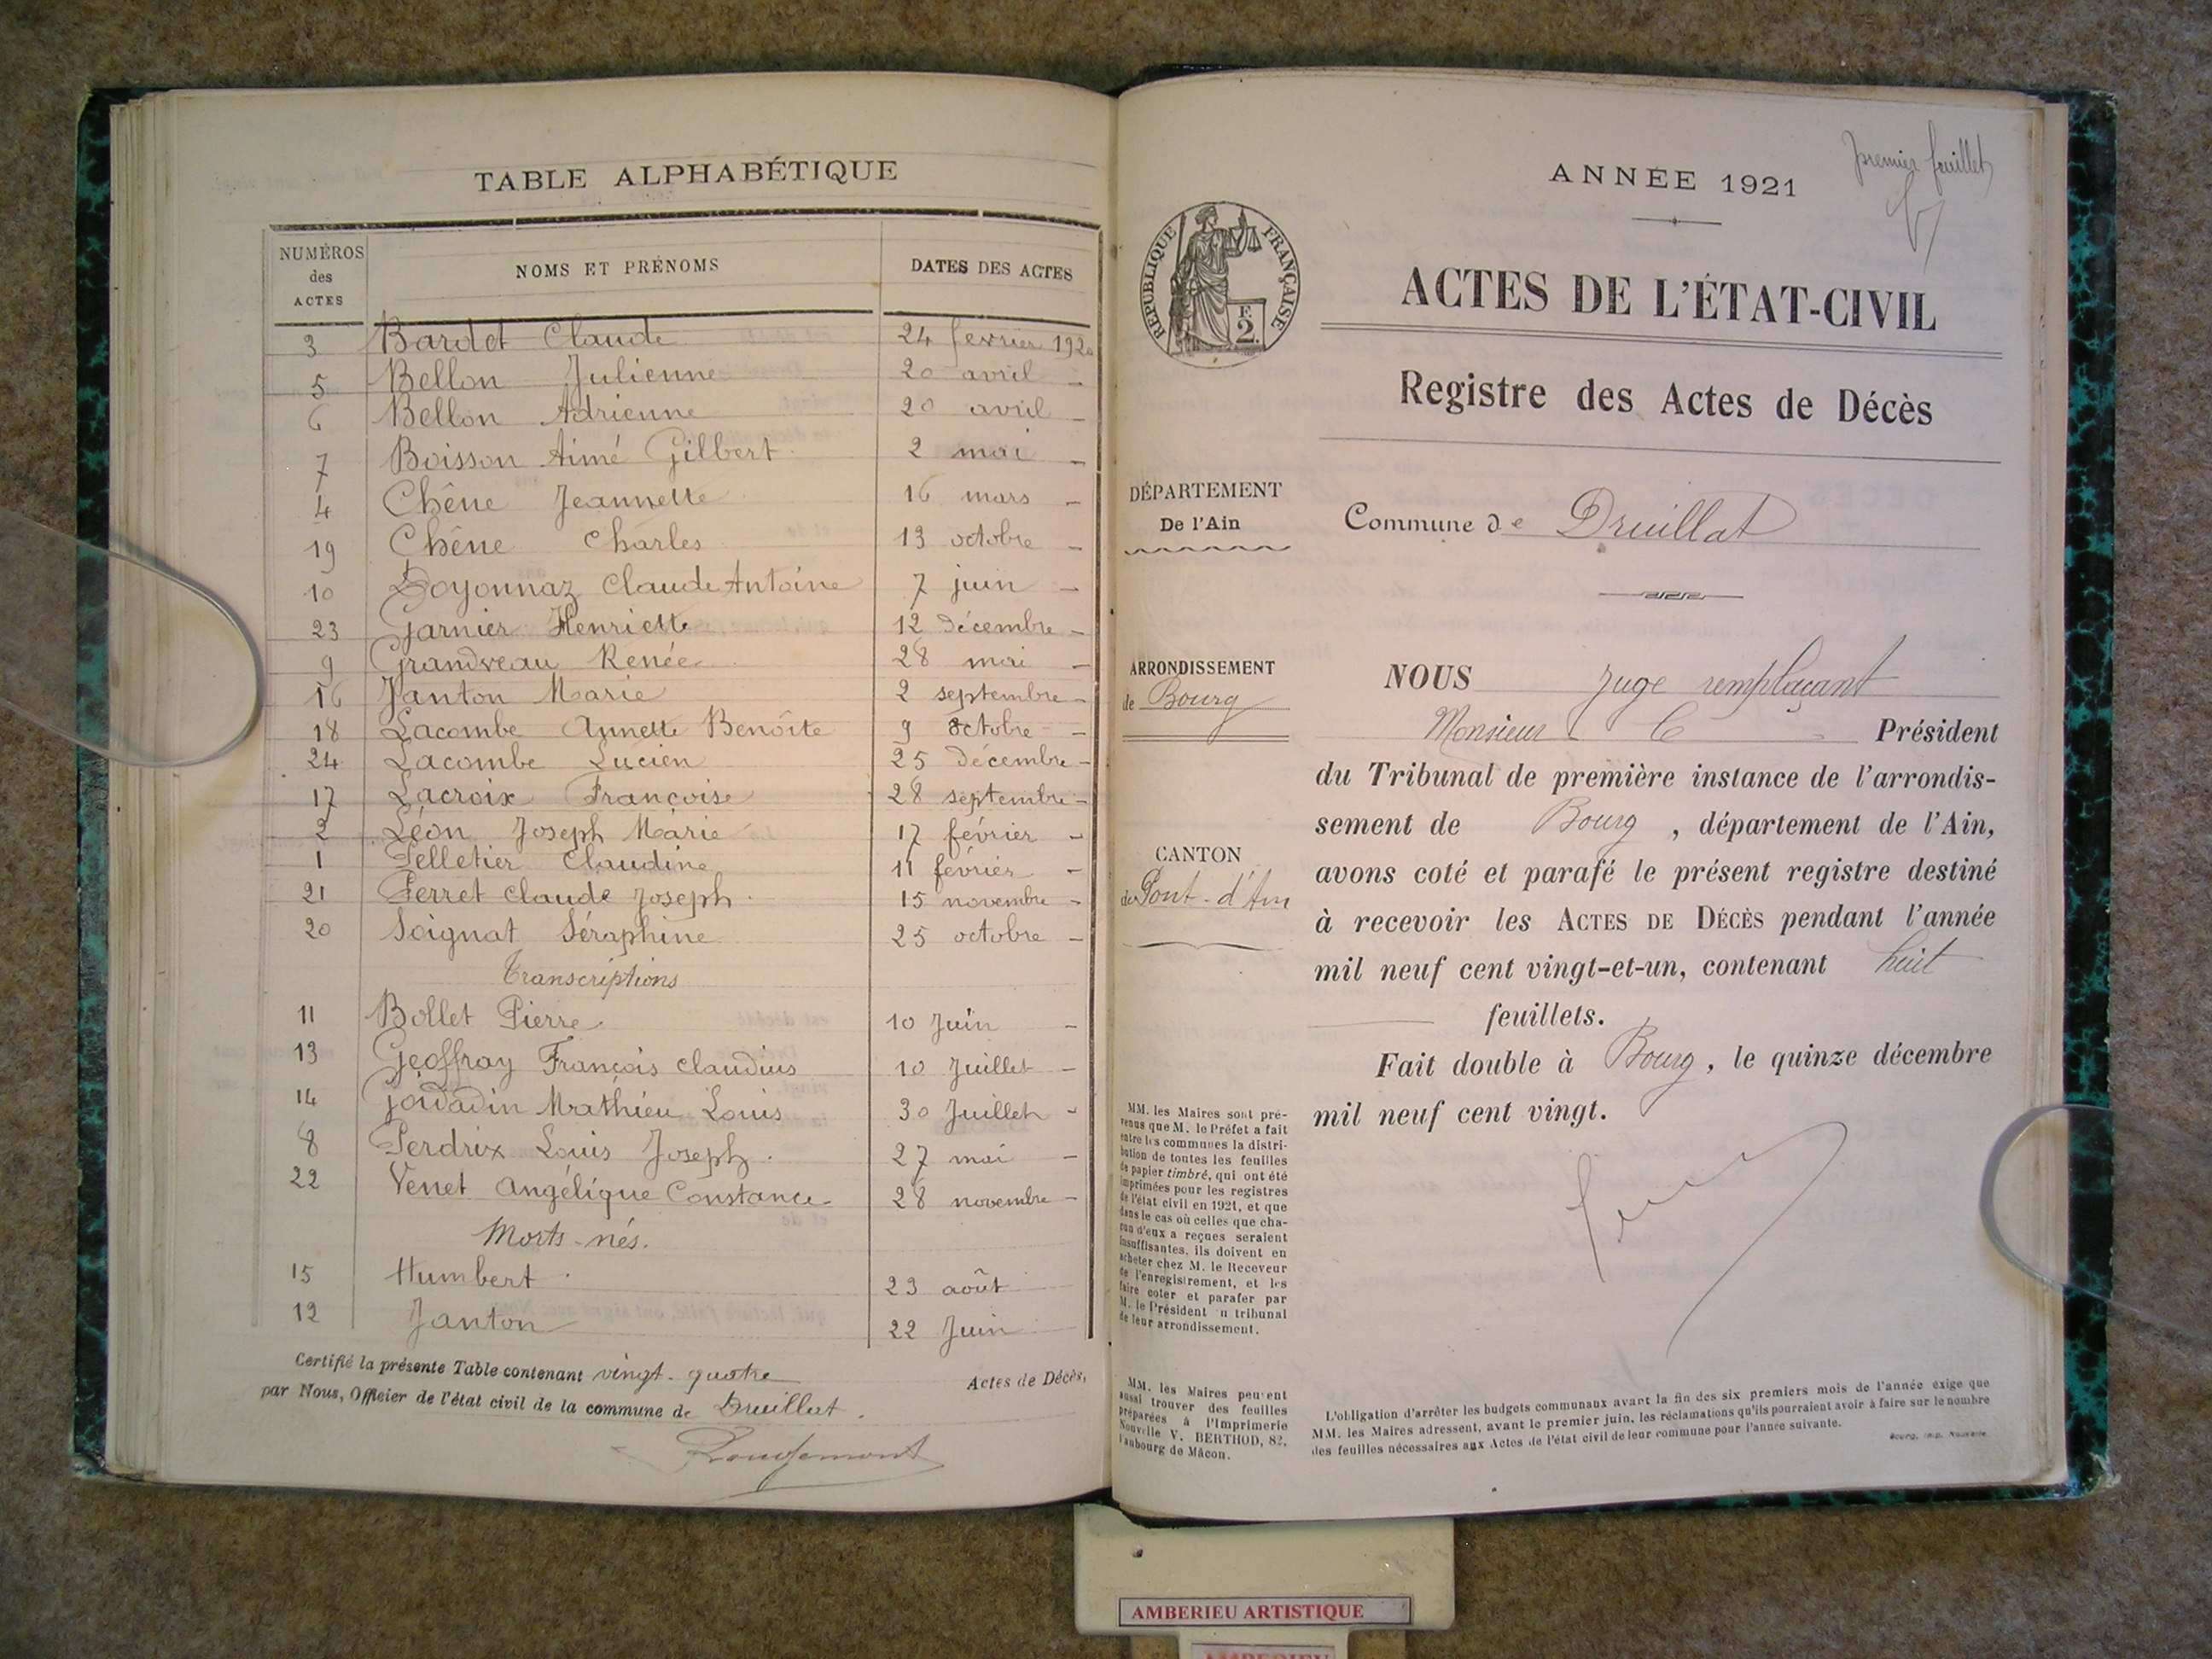 TABLE ALPHABÉTIQUE
NUMÉROS des ACTES
NOMS ET PRÉNOMS
DATES DES ACTES
3 Bardet Claude 24 fevrier 1920
5 Bellon Julienne 20 avril -
6 Bellon Adrienne 20 avril -
7 Boisson Aimé Gilbert 2 mai -
4 Chêne Jeannette 16 mars -
19 Chêne Charles 13 octobre -
10 Doyonnaz Claude Antoine 7 juin -
23 Garnier Henriette 12 décembre -
9 Grandveau Renée 28 mai -
16 Janton Marie 2 septembre -
18 Lacombe Annette Benoîte 9 octobre -
24 Lacombe Lucien 25 décembre -
17 Lacroix Françoise 28 septembre -
2 Léon Joseph Marie 17 février -
1 Pelletier Claudine 11 février -
21 Perret Claude Joseph 15 novembre -
20 Soignat Séraphine 25 octobre -
Transcriptions
11 Bollet Pierre 10 Juin -
13 Geoffray François Claudius 10 Juillet -
14 Mathieu Louis 30 Juillet -
8 Perdrix Louis Joseph 27 mai -
22 Venet Angélique Constance 28 novembre -
Morts-nés.
15 Humbert 23 août
12 Janton 22 Juin
Certifié la présente Table contenant vingt-quatre Actes de Décès,
par Nous, Officier de l'état civil de la commune de Druillat.
premier feuillet
ANNÉE 1921
RÉPUBLIQUE FRANÇAISE
F. 2.
ACTES DE L'ÉTAT-CIVIL
Registre des Actes de Décès
DÉPARTEMENT
De l'Ain
Commune de Druillat
ARRONDISSEMENT
de Bourg
CANTON
de Pont-d'Ain
NOUS Juge remplaçant
Monsieur Président
du Tribunal de première instance de l'arrondis-
sement de Bourg, département de l'Ain,
avons coté et parafé le présent registre destiné
à recevoir les ACTES DE DÉCÈS pendant l'année
mil neuf cent vingt-et-un, contenant huit
feuillets.
Fait double à Bourg, le quinze décembre
mil neuf cent vingt.
MM. les Maires sont pré-
venus que M. le Préfet a fait
entre les communes la distri-
bution de toutes les feuilles
de papier timbré, qui ont été
imprimées pour les registres
de l'état civil en 1921, et que
dans le cas où celles que cha-
cun d'eux a reçues seraient
insuffisantes, ils doivent en
acheter chez M. le Receveur
de l'enregistrement, et les
faire coter et parafer par
M. le Président u tribunal
de leur arrondissement.
MM. les Maires peuvent
aussi trouver des feuilles
préparées à l'Imprimerie
Nouvelle V. BERTHOD, 82,
faubourg de Mâcon.
L'obligation d'arrêter les budgets communaux avant la fin des six premiers mois de l'année exige que
MM. les Maires adressent, avant le premier juin, les réclamations qu'ils pourraient avoir à faire sur le nombre
des feuilles nécessaires aux Actes de l'état civil de leur commune pour l'année suivante.
Bourg, Imp. Nouvelle
AMBERIEU ARTISTIQUE